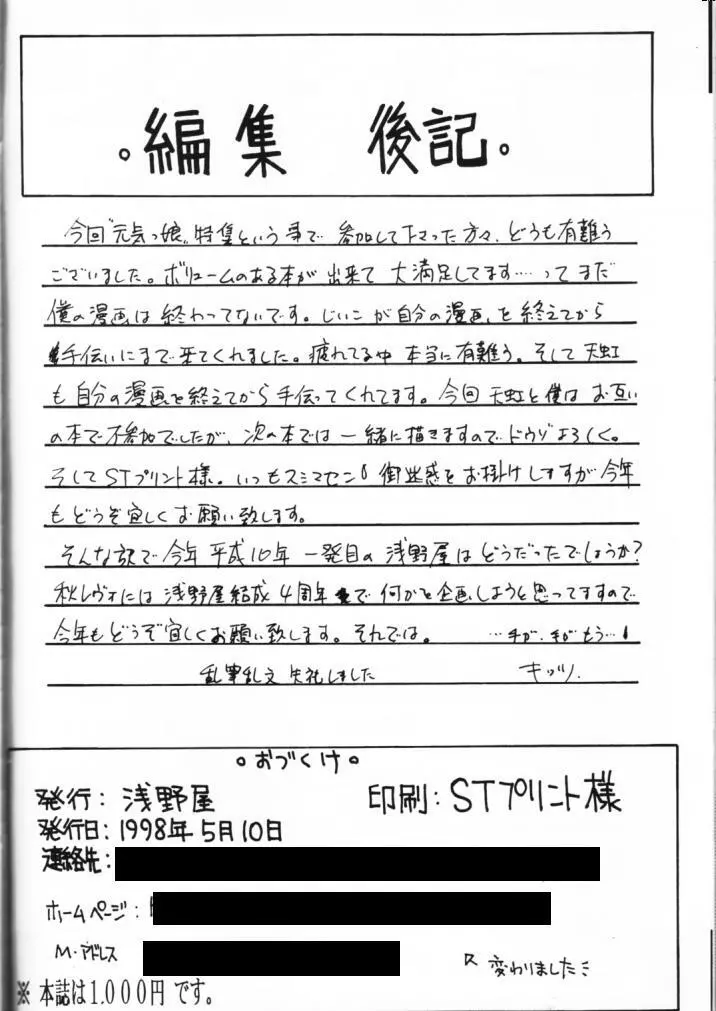 。編集 後記。
今回"元気っ娘"特集という事で 参加して下さった方々、どうも有難う
ございました。ボリュームのある本が 出来て 大満足してます……って まだ
僕の漫画は 終わってないです。じいこ が自分の漫画を終えてから
手伝いにまで来てくれました。疲れてる中 本当に有難う。そして 天虹
も 自分の漫画を終えてから 手伝ってくれてます。今回 天虹と僕は お互い
の本で不参加でしたが、次の本では 一緒に描きますのでドウゾよろしく。
そして STプリント様。いつもスミマセン! 御迷惑を お掛けしますが今年
も どうぞ宜しく お願い致します。
そんな訳で 今年 平成10年 一発目の 浅野屋は どうだったでしょうか?
秋レヴォには 浅野屋結成 4周年 で 何かを企画しようと思ってますので
今年も どうぞ宜しくお願い致します。それでは。 …手が、手がもう…!
乱筆乱文 失礼しました キッツ。
。おづくけ。
発行: 浅野屋 印刷: STプリント様
発行日: 1998年 5月10日
連絡先:
ホームページ:
M・アドレス 変わりました
※ 本誌は1,000円 です。